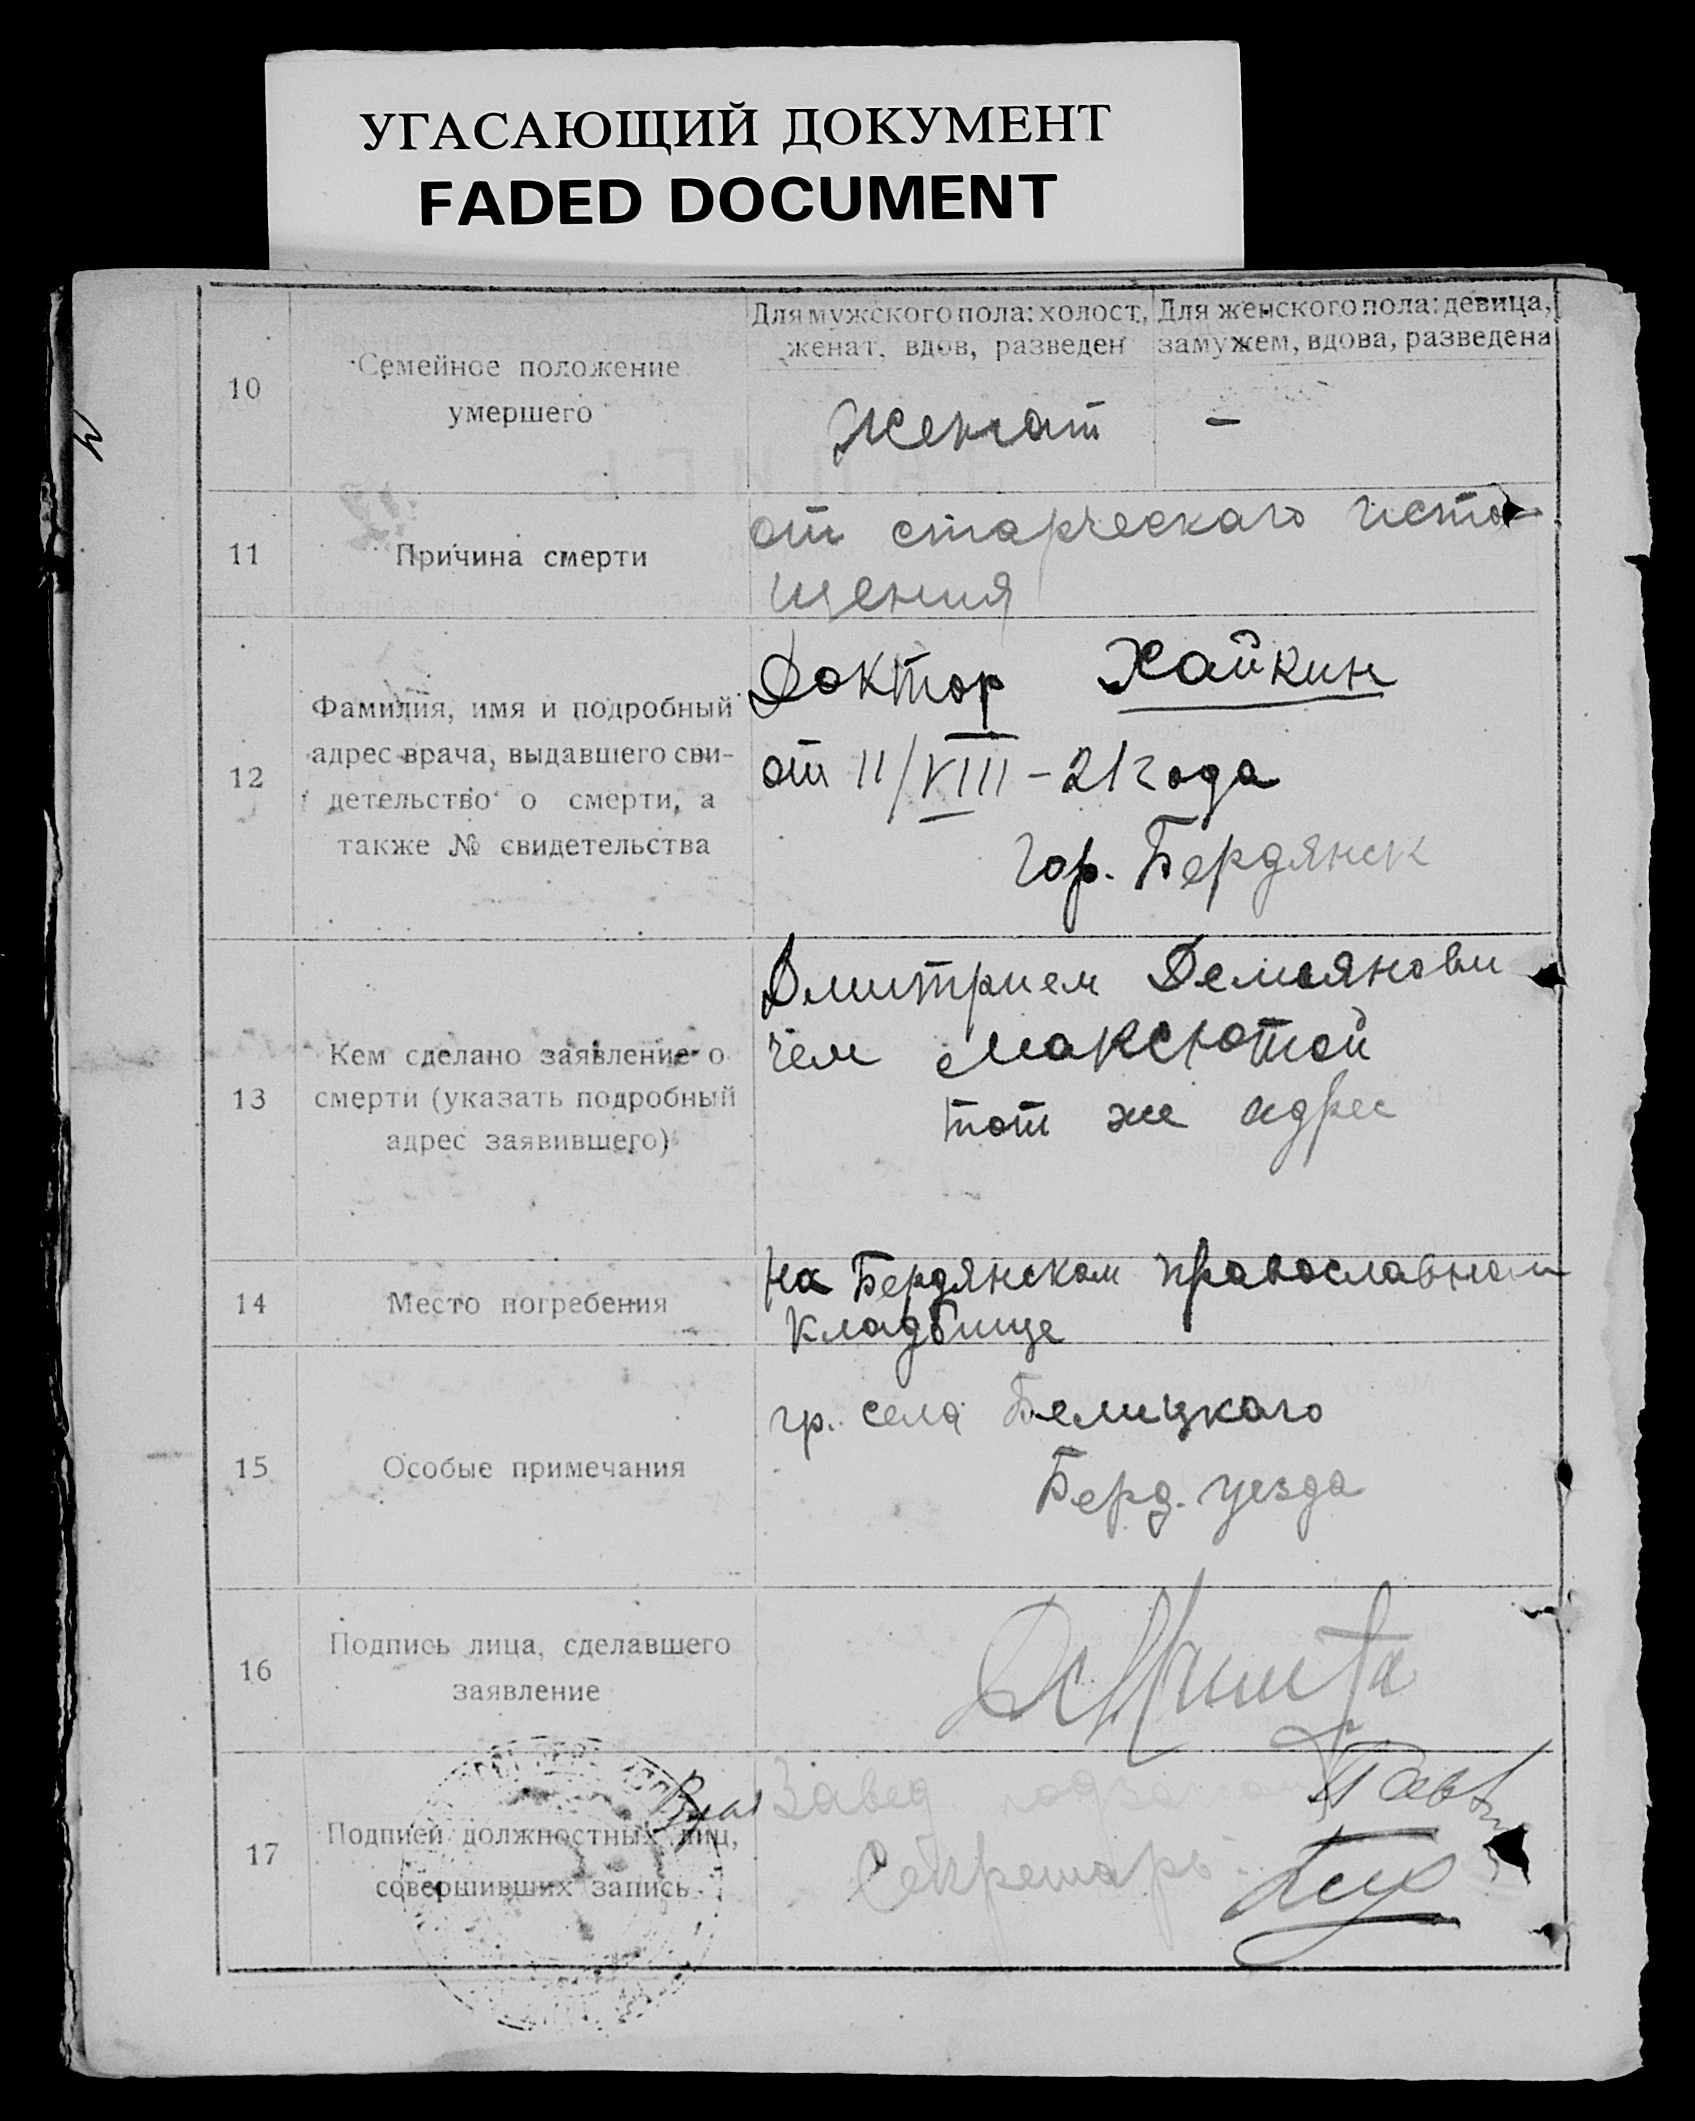 УГАСАЮЩИЙ ДОКУМЕНТ
FADED DOCUMENT
10
Семейное положение
умершего
Для мужского пола: холост,
женат, вдов, разведен
Для женского пола: девица,
замужем, вдова, разведена
Женат
-
11
Причина смерти
от старческаго исто-
щения
12
Фамилия, имя и подробный
адрес врача, выдавшего сви-
детельство о смерти, а
также № свидетельства
Доктор Хайкин
от 11/VIII - 21 года
гор. Бердянск
13
Кем сделано заявление о
смерти (указать подробный
адрес заявившего)
Дмитрием Демьянови
чем Максютой
тот же адрес
14
Место погребения
на Бердянском православном
кладбище
15
Особые примечания
гр. села Белицкаго
Берд. уезда
16
Подпись лица, сделавшего
заявление
17
Подписи должностных лиц,
совершивших запись
Завед
Секретарь